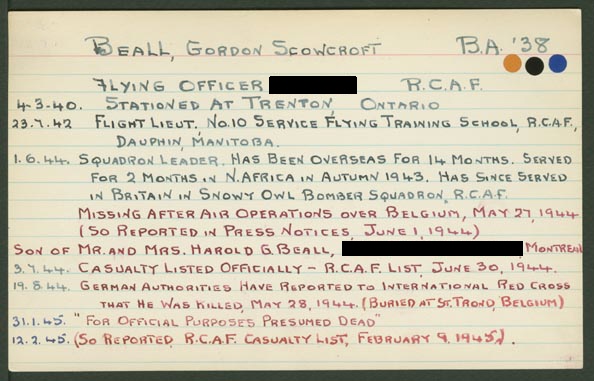 BEALL, GORDON SCOWCROFT B.A. '38
FLYING OFFICER R.C.A.F.
4-3-40. STATIONED AT TRENTON ONTARIO
23.7.42 FLIGHT LIEUT. NO.10 SERVICE FLYING TRAINING SCHOOL, R.C.A.F.,
DAUPHIN, MANITOBA.
1.6.44. SQUADRON LEADER. HAS BEEN OVERSEAS FOR 14 MONTHS. SERVED
FOR 2 MONTHS IN N.AFRICA IN AUTUMN 1943. HAS SINCE SERVED
IN BRITAIN IN SNOWY OWL BOMBER SQUADRON, R.C.A.F.
MISSING AFTER AIR OPERATIONS OVER BELGIUM, MAY 27, 1944
(SO REPORTED IN PRESS NOTICES, JUNE 1, 1944)
SON OF MR. AND MRS. HAROLD G. BEALL, MONTREAL
3.7.44. CASUALTY LISTED OFFICIALLY - R.C.A.F. LIST, JUNE 30, 1944.
19.8.44. GERMAN AUTHORITIES HAVE REPORTED TO INTERNATIONAL RED CROSS
THAT HE WAS KILLED, MAY 28, 1944. (BURIED AT ST. TROND, BELGIUM)
31.1.45. "FOR OFFICIAL PURPOSES PRESUMED DEAD"
12.2.45. (SO REPORTED, R.C.A.F. CASUALTY LIST, FEBRUARY 9, 1945).